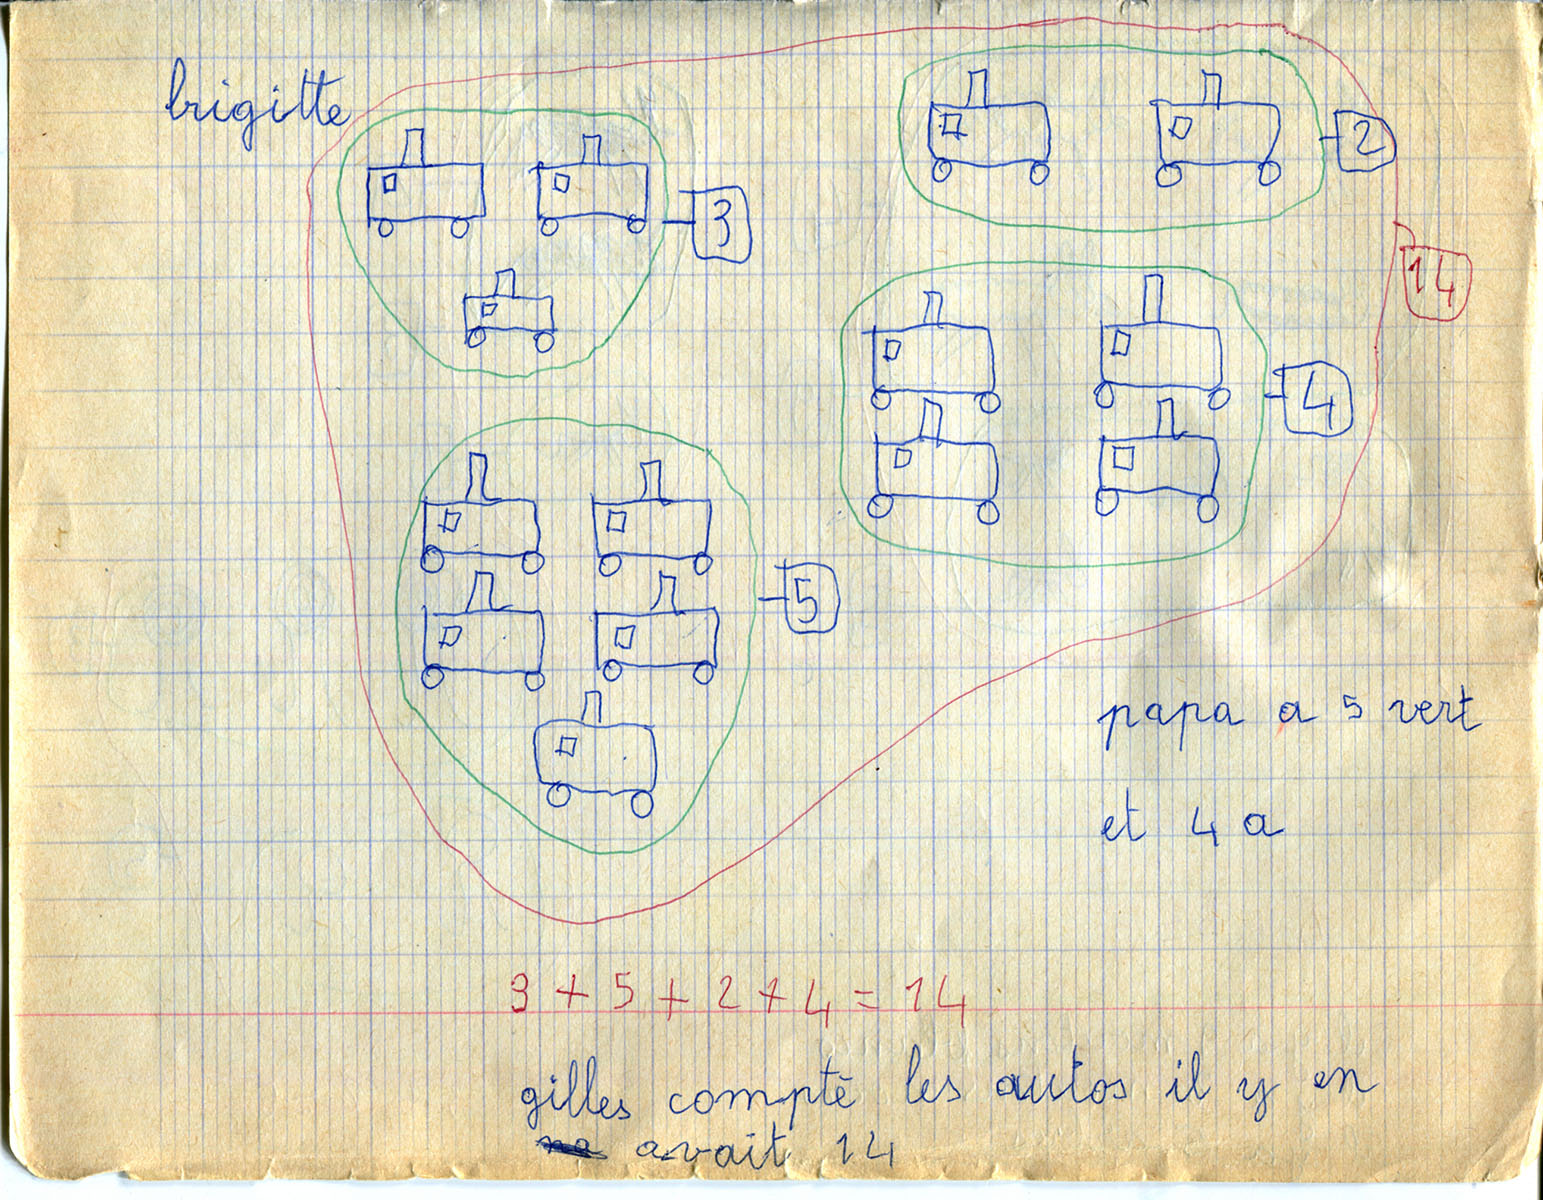 brigitte
3
2
14
4
5
papa a 5 vert
et 4 a
3 + 5 + 2 + 4 = 14
gilles compte les autos il y en
avait 14